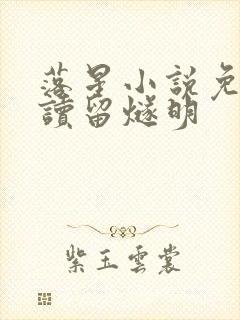 落星小説免
讀留燧明
紫玉雲裳